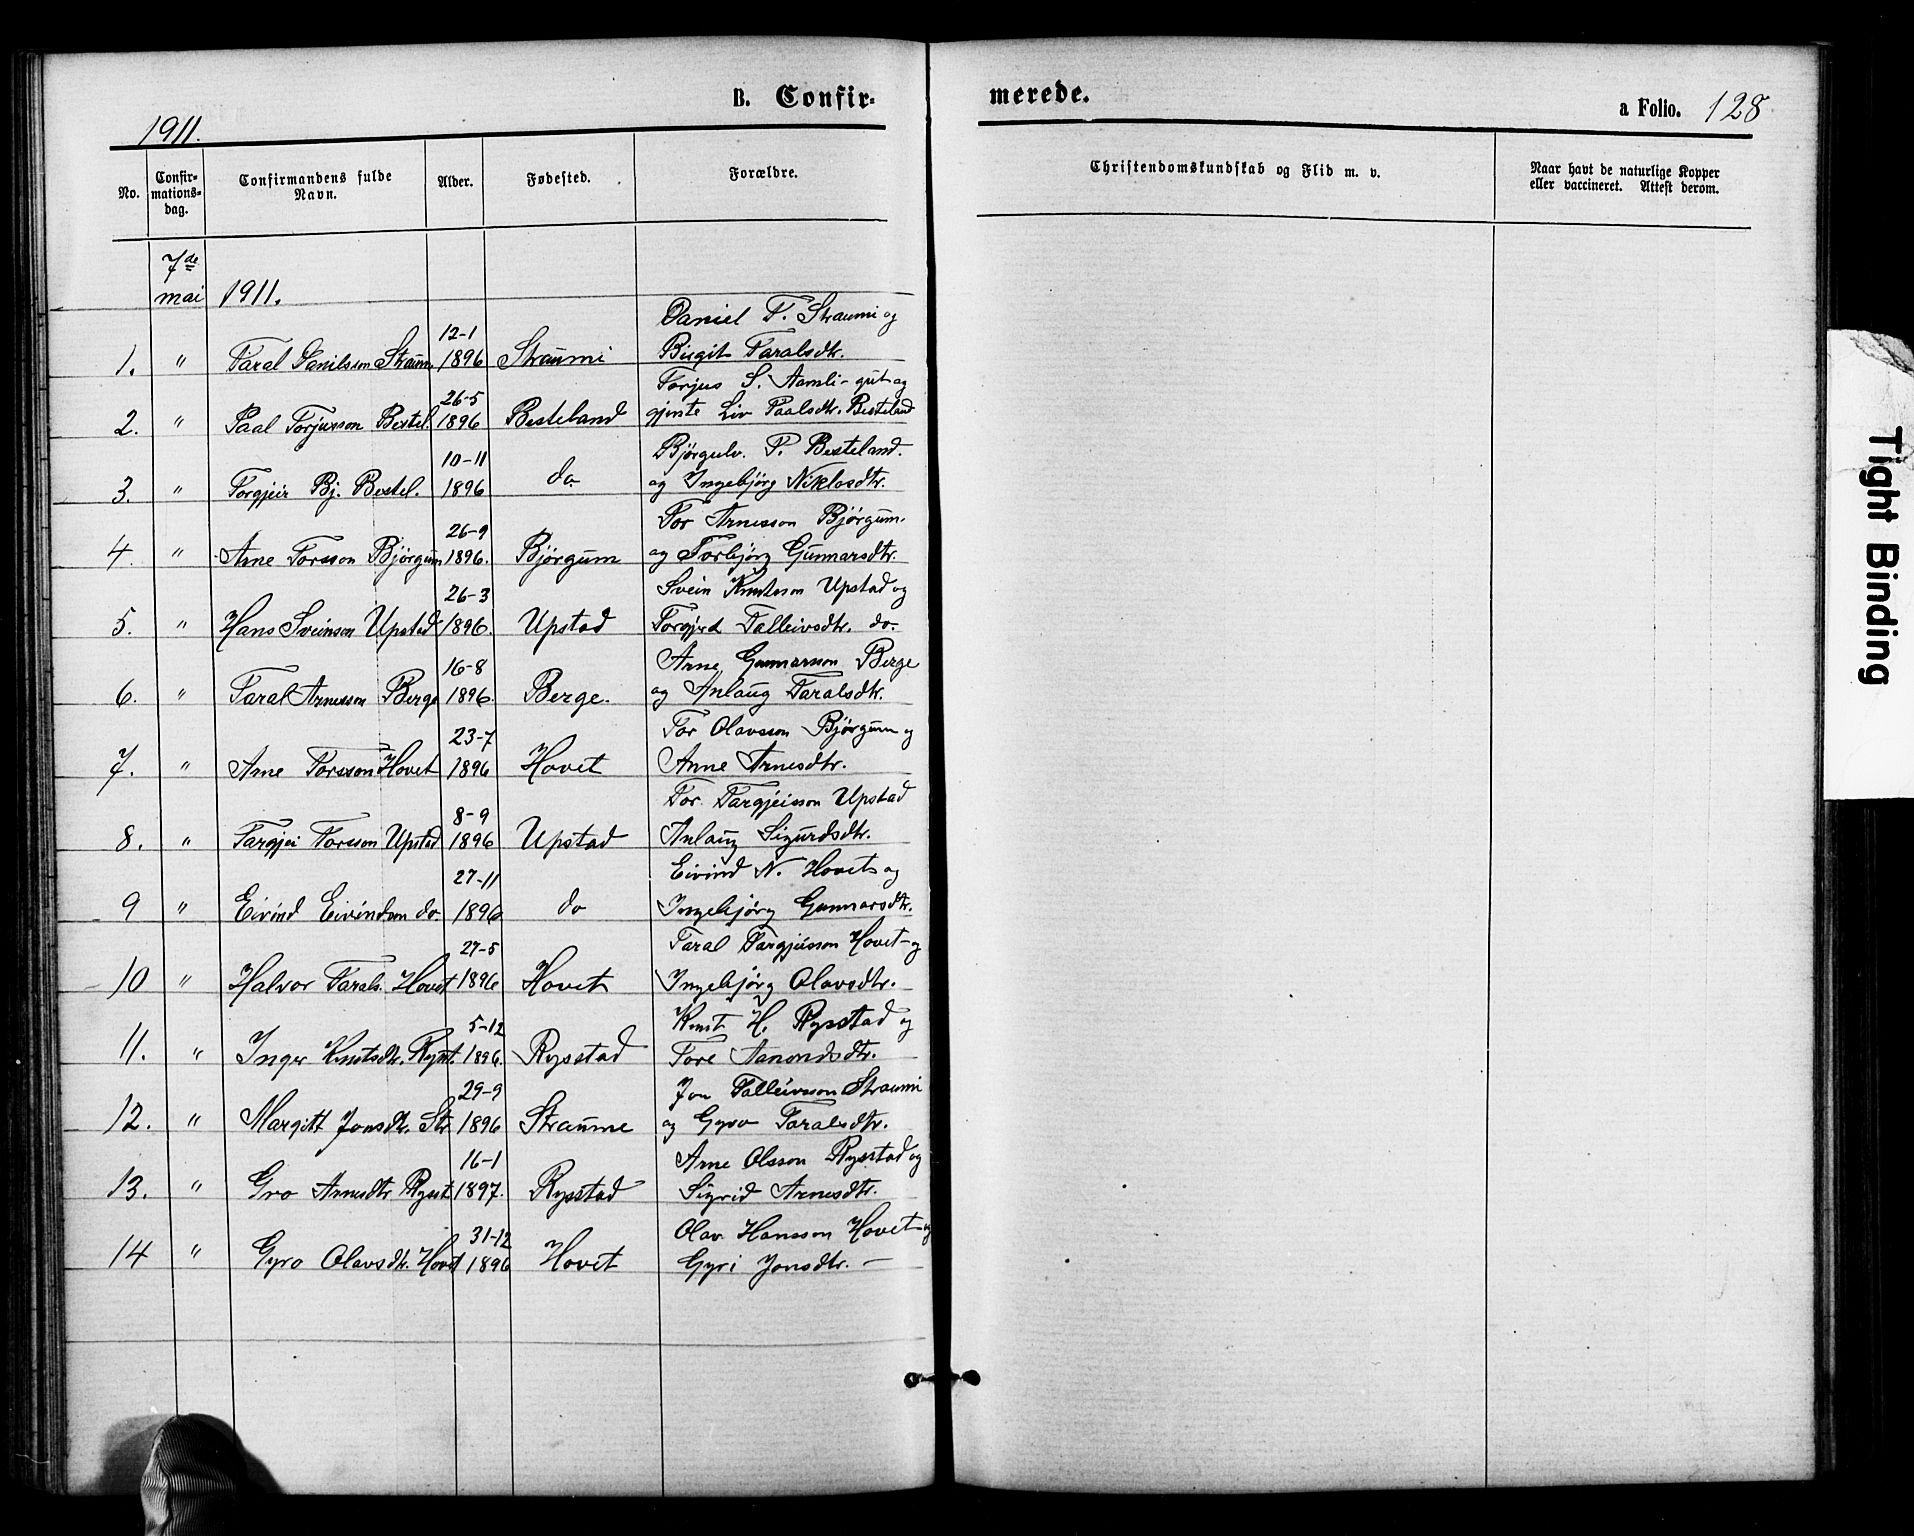 B. Confir-
merede.
a Folio. 128
1911.
No.
Confir-
mations-
dag.
Confirmandens fulde
Navn.
Alder.
Fødested.
Forældre.
Christendomskundskab og Flid m. v.
Naar havt de naturlige Kopper
eller vaccineret. Attest derom.
7de
mai 1911.
Daniel T. Straumi og
12-1
1. " Taral Danilsson Straum 1896 Straumi Birgit Taralsdtr.
Torjus S. Aamli - gut og
26-5
2. " Paal Torjusson Bestel. 1896 Besteland gjente Liv Paalsdtr. Besteland
Bjørgulv. P. Besteland.
10-11
3. " Torgjeir Bj. Bestel. 1896 do. og Ingebjörg Niklosdtr.
Tor Arnesson Bjørgum.
26-9
4. " Arne Torsson Bjørgum 1896. Bjørgum og Torbjørg Gunnarsdtr.
Svein Knutsson Upstad og
26-3
5. " Hans Sveinson Upstad 1896. Upstad Torgjerd Talleivsdtr. do.
Arne Gunnarson Berge
16-8
6. " Taral Arnesson Berge 1896. Berge. og Anlaug Taralsdtr.
Tor Olavsson Bjørgum og
23-7
7. " Arne Torsson Hovet 1896 Hovet Anne Arnesdtr.
Tor Targjeisson Upstad
8-9
8. " Targjei Torsson Upstad 1896 Upstad Anlaug Sigurdsdtr.
Eivind N. Hovet og
27-11
9 " Eivind Eivindson do. 1896 do Ingebjörg Gunnarsdtr.
Taral Targjeisson Hovet - og
27-5
10 " Halvor Tarals. Hovet 1896 Hovet Ingebjörg Olavsdtr.
Knut H. Rysstad og
5-12
11. " Inger Knutsdtr. Ryst. 1896. Rysstad Tore Aanondsdtr.
Jon Talleivsson Straumi
29-9
12. " Margitt Jonsdtr. Str. 1896 Straume og Gyro Taralsdtr.
Arne Olsson Rysstad og
16-1
13. " Gro Arnesdtr Rysst. 1897. Rysstad Sigrid Arnesdtr.
Olav Hansson Hovet - og
31-12
14 " Gyro Olavsdtr. Hovet 1896 Hovet Gyri Jonsdtr. —
Tight Binding